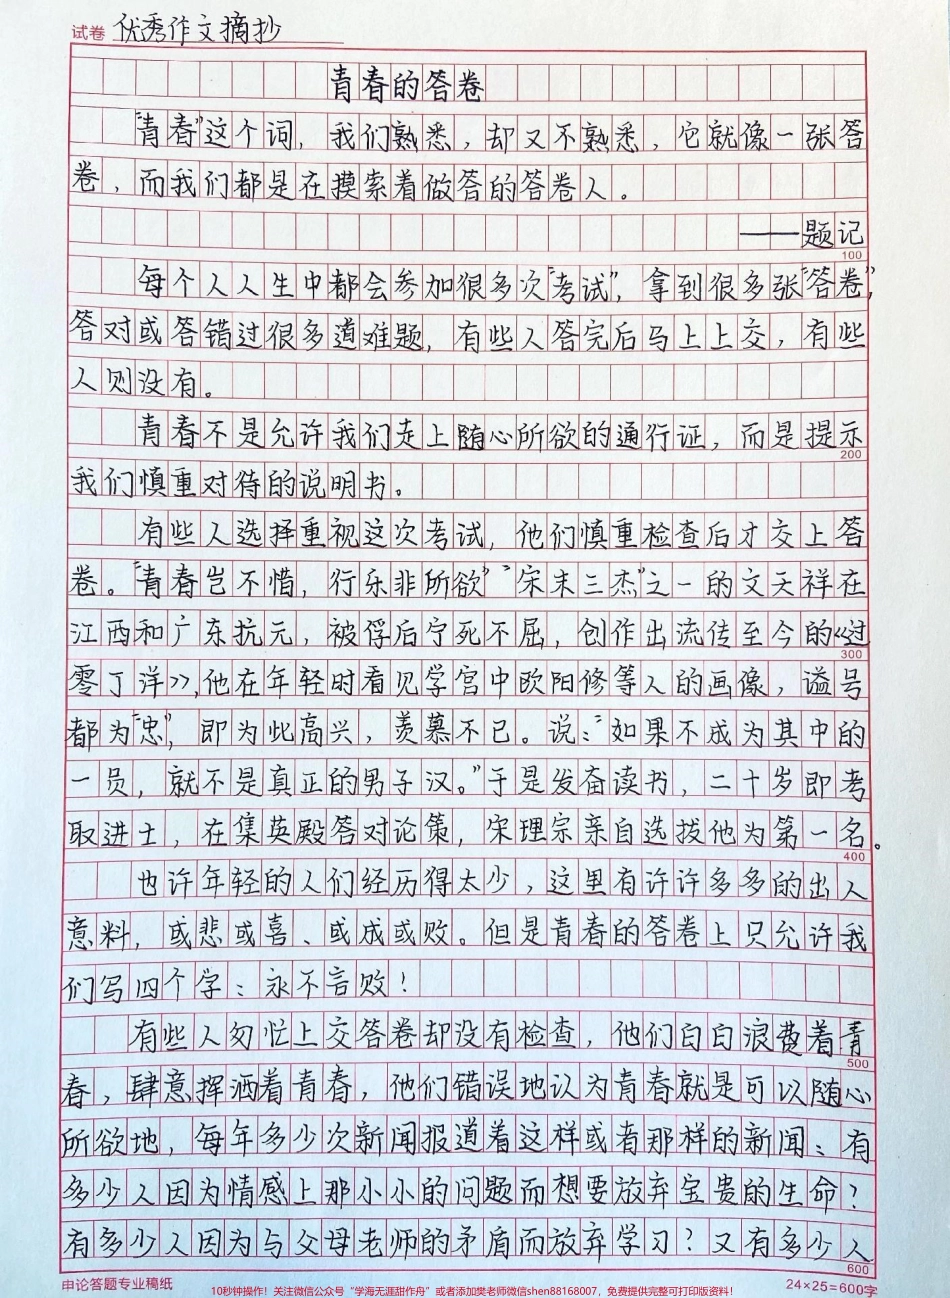 试卷 优秀作文摘抄
青春的答卷
“青春”这个词，我们熟悉，却又不熟悉，它就像一张答
卷，而我们都是在摸索着做答的答卷人。
——题记
100
每个人人生中都会参加很多次“考试”，拿到很多张“答卷”，
答对或答错过很多道难题，有些人答完后马上上交，有些
人则没有。
青春不是允许我们走上随心所欲的通行证，而是提示
200
我们慎重对待的说明书。
有些人选择重视这次考试，他们慎重检查后才交上答
卷。“青春岂不惜，行乐非所欲”“宋末三杰”之一的文天祥在
江西和广东抗元，被俘后宁死不屈，创作出流传至今的《过
300
零丁洋》，他在年轻时看见学宫中欧阳修等人的画像，谥号
都为“忠”，即为此高兴，羡慕不已。说：“如果不成为其中的
一员，就不是真正的男子汉。”于是发奋读书，二十岁即考
取进士，在集英殿答对论策，宋理宗亲自选拔他为第一名。
400
也许年轻的人们经历得太少，这里有许许多多的出人
意料，或悲或喜、或成或败。但是青春的答卷上只允许我
们写四个字：永不言败！
有些人匆忙上交答卷却没有检查，他们白白浪费着青
500
春，肆意挥洒着青春，他们错误地认为青春就是可以随心
所欲地，每年多少次新闻报道着这样或者那样的新闻：有
多少人因为情感上那小小的问题而想要放弃宝贵的生命？
有多少人因为与父母老师的矛盾而放弃学习？又有多少人
600
申论答题专业稿纸
24×25=600字
10秒钟操作！关注微信公众号“学海无涯甜作舟”或者添加樊老师微信shen88168007，免费提供完整可打印版资料！